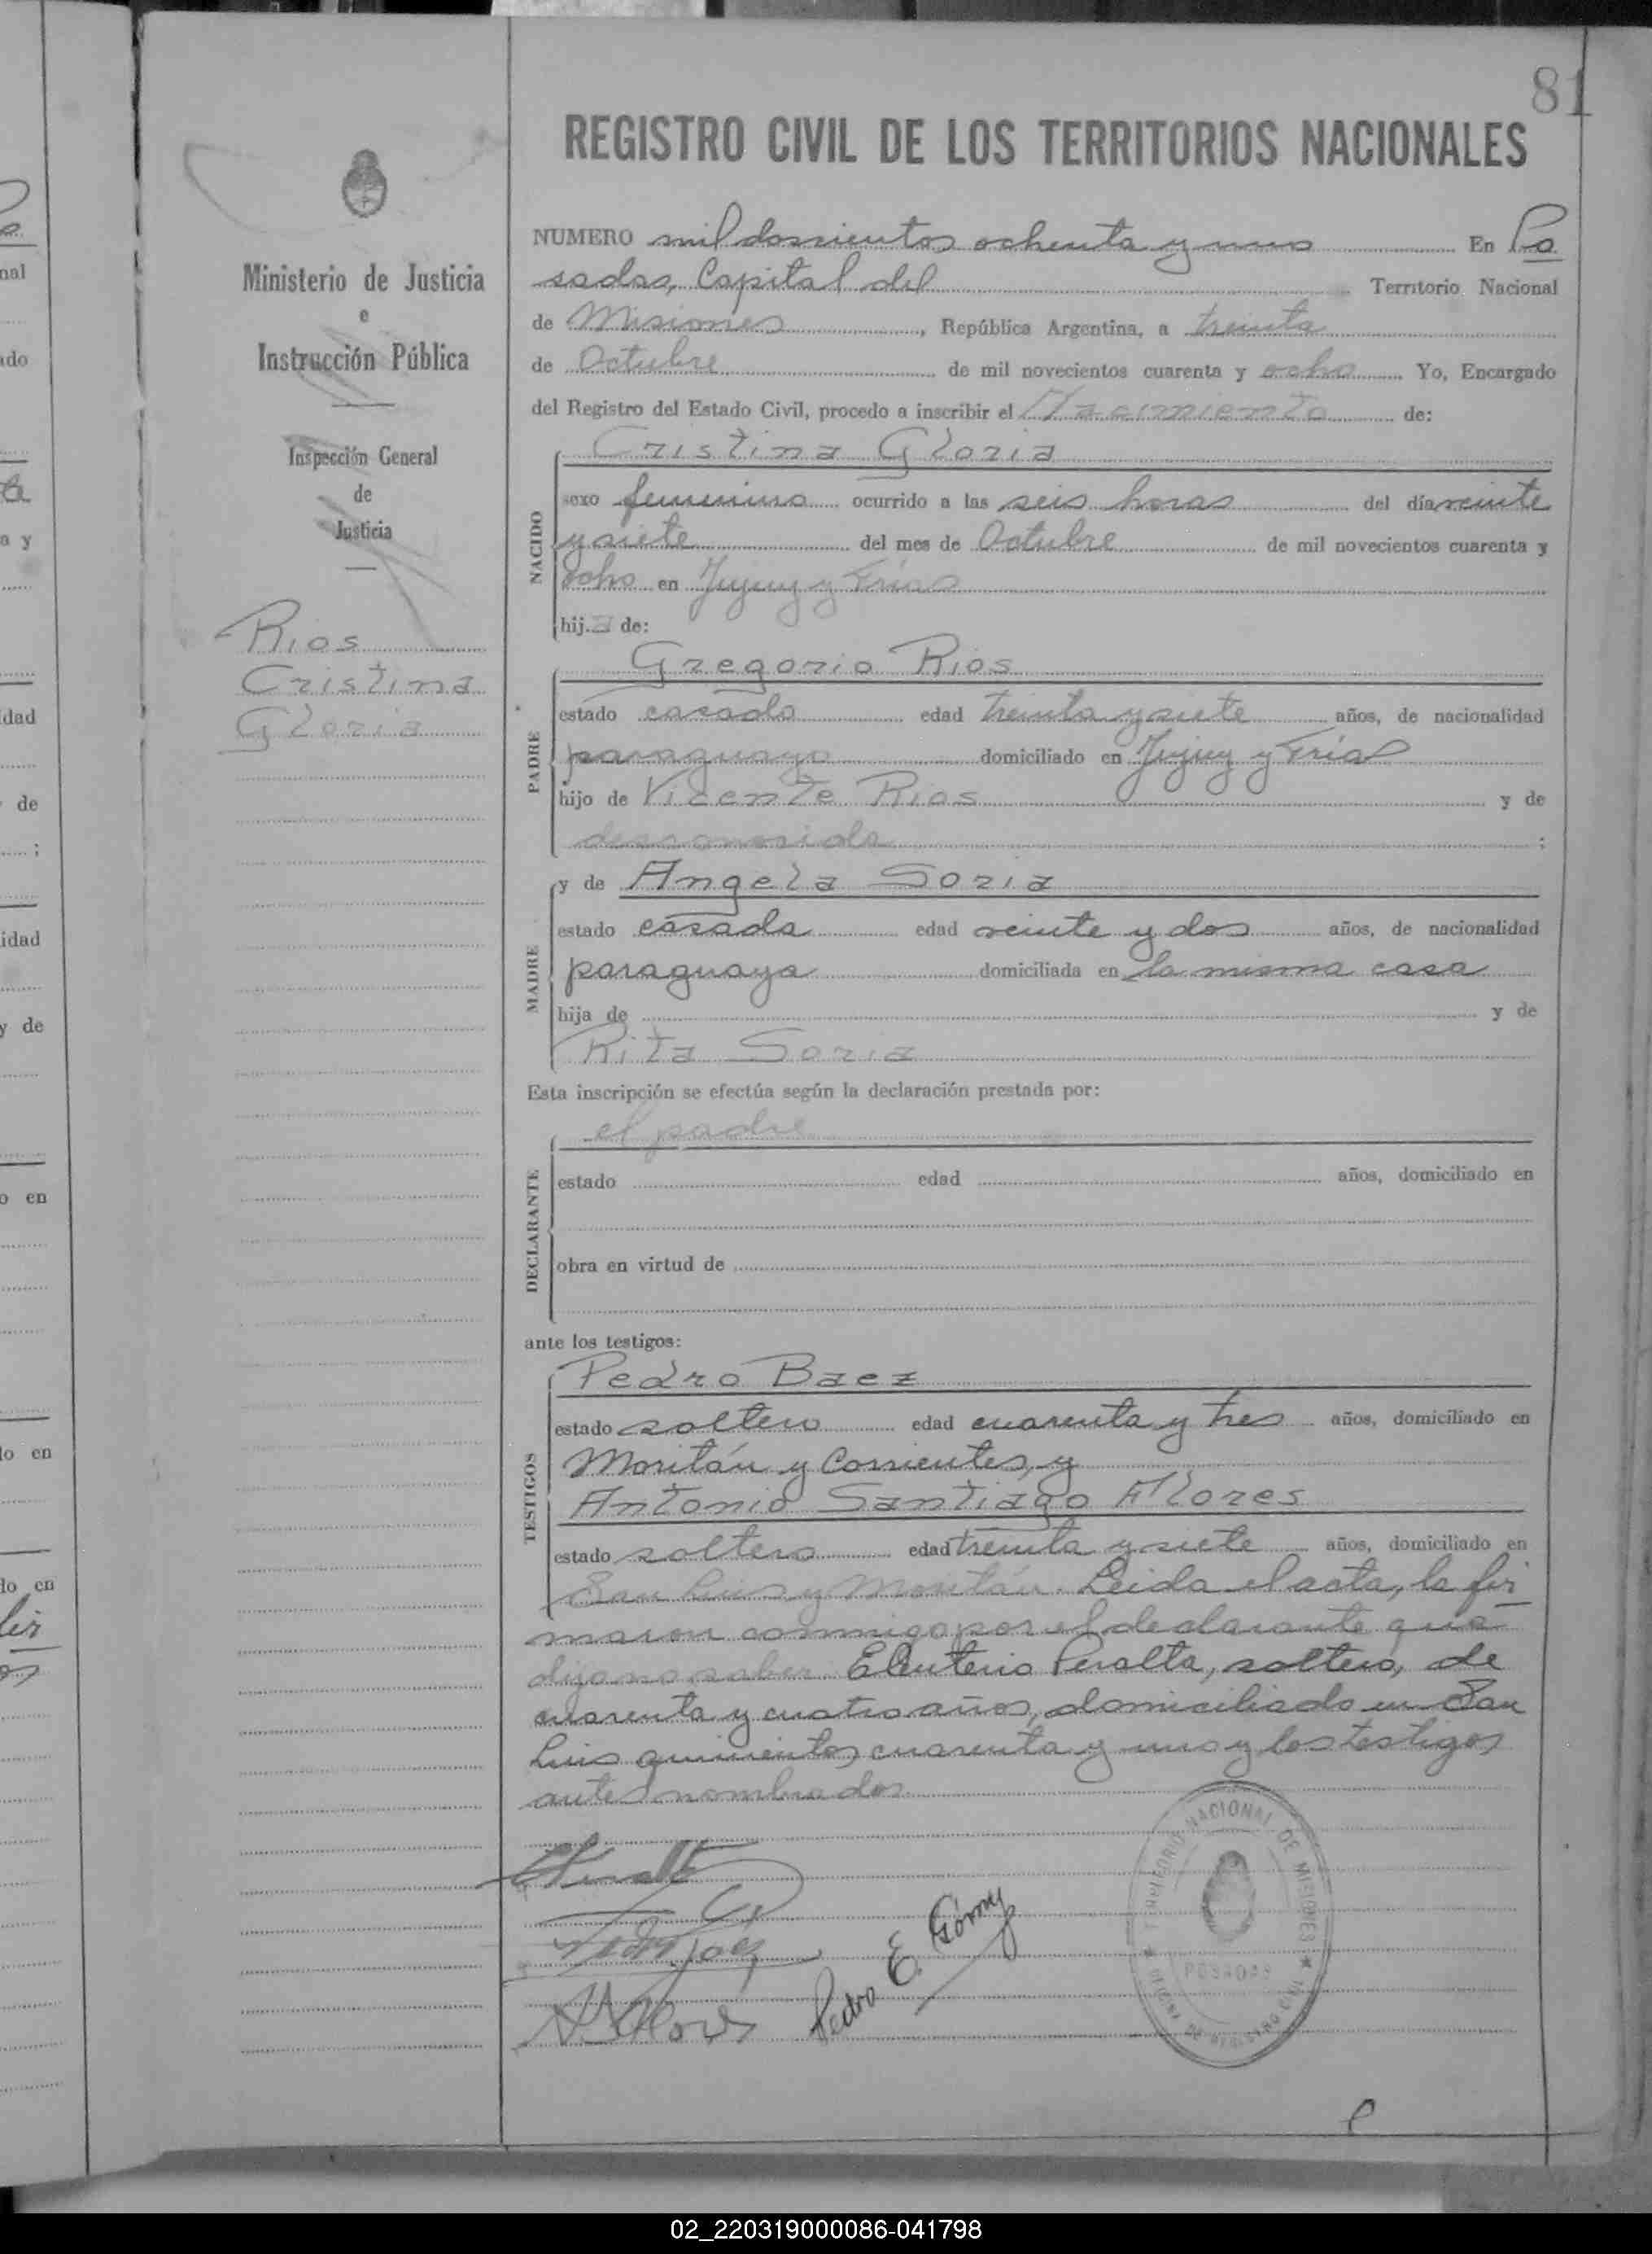 81
REGISTRO CIVIL DE LOS TERRITORIOS NACIONALES
Ministerio de Justicia
e
Instrucción Pública
Inspección General
de
Justicia
Rios
Cristina
Gloria
NUMERO mil doscientos ochenta y uno En Po
sadas, Capital del Territorio Nacional
de Misiones, República Argentina, a treinta
de Octubre de mil novecientos cuarenta y ocho Yo, Encargado
del Registro del Estado Civil, procedo a inscribir el Nacimiento de:
Cristina Gloria
NACIDO
sexo femenino ocurrido a las seis horas del día veinte
y siete del mes de Octubre de mil novecientos cuarenta y
ocho en Jujuy y Frías
hija de:
Gregorio Rios
PADRE
estado casado edad treinta y siete años, de nacionalidad
paraguayo domiciliado en Jujuy y Frías
hijo de Vicente Rios y de
desconocida ;
y de Angela Soria
MADRE
estado casada edad veinte y dos años, de nacionalidad
paraguaya domiciliada en la misma casa
hija de y de
Rita Soria
Esta inscripción se efectúa según la declaración prestada por:
el padre
DECLARANTE
estado edad años, domiciliado en
obra en virtud de
ante los testigos:
Pedro Baez
TESTIGOS
estado soltero edad cuarenta y tres años, domiciliado en
Moritán y Corrientes, y
Antonio Santiago Flores
estado soltero edad treinta y siete años, domiciliado en
San Luis y Moritán. Leida el acta, la fir
maron conmigo por el declarante que
dijo no saber Eleuterio Peralta, soltero, de
cuarenta y cuatro años, domiciliado en San
Luis quinientos cuarenta y uno y los testigos
antes nombrados.
Pedro E. Gómez
TERRITORIO NACIONAL DE MISIONES
POSADAS
OFICINA DE REGISTRO CIVIL
02_220319000086-041798